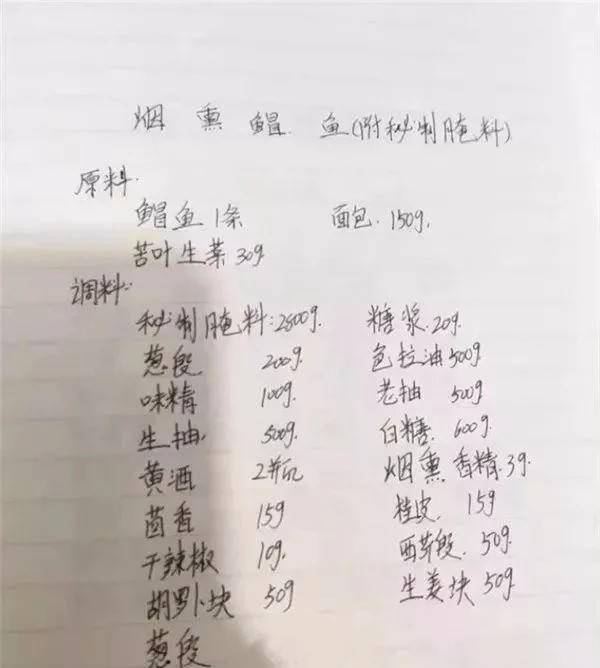 烟熏鲳鱼(附秘制腌料)
原料:
鲳鱼1条 面包 150g.
苦叶生菜30g
调料:
秘制腌料:2500g. 糖浆.20g.
葱段 200g. 色拉油500g
味精 100g. 老抽 500g
生抽. 500g. 白糖. 600g.
黄酒 2瓶 烟熏香精.3g.
茴香 15g 桂皮. 15g
干辣椒 10g. 西芹段. 50g.
胡罗卜块 50g 生姜块 50g.
葱段